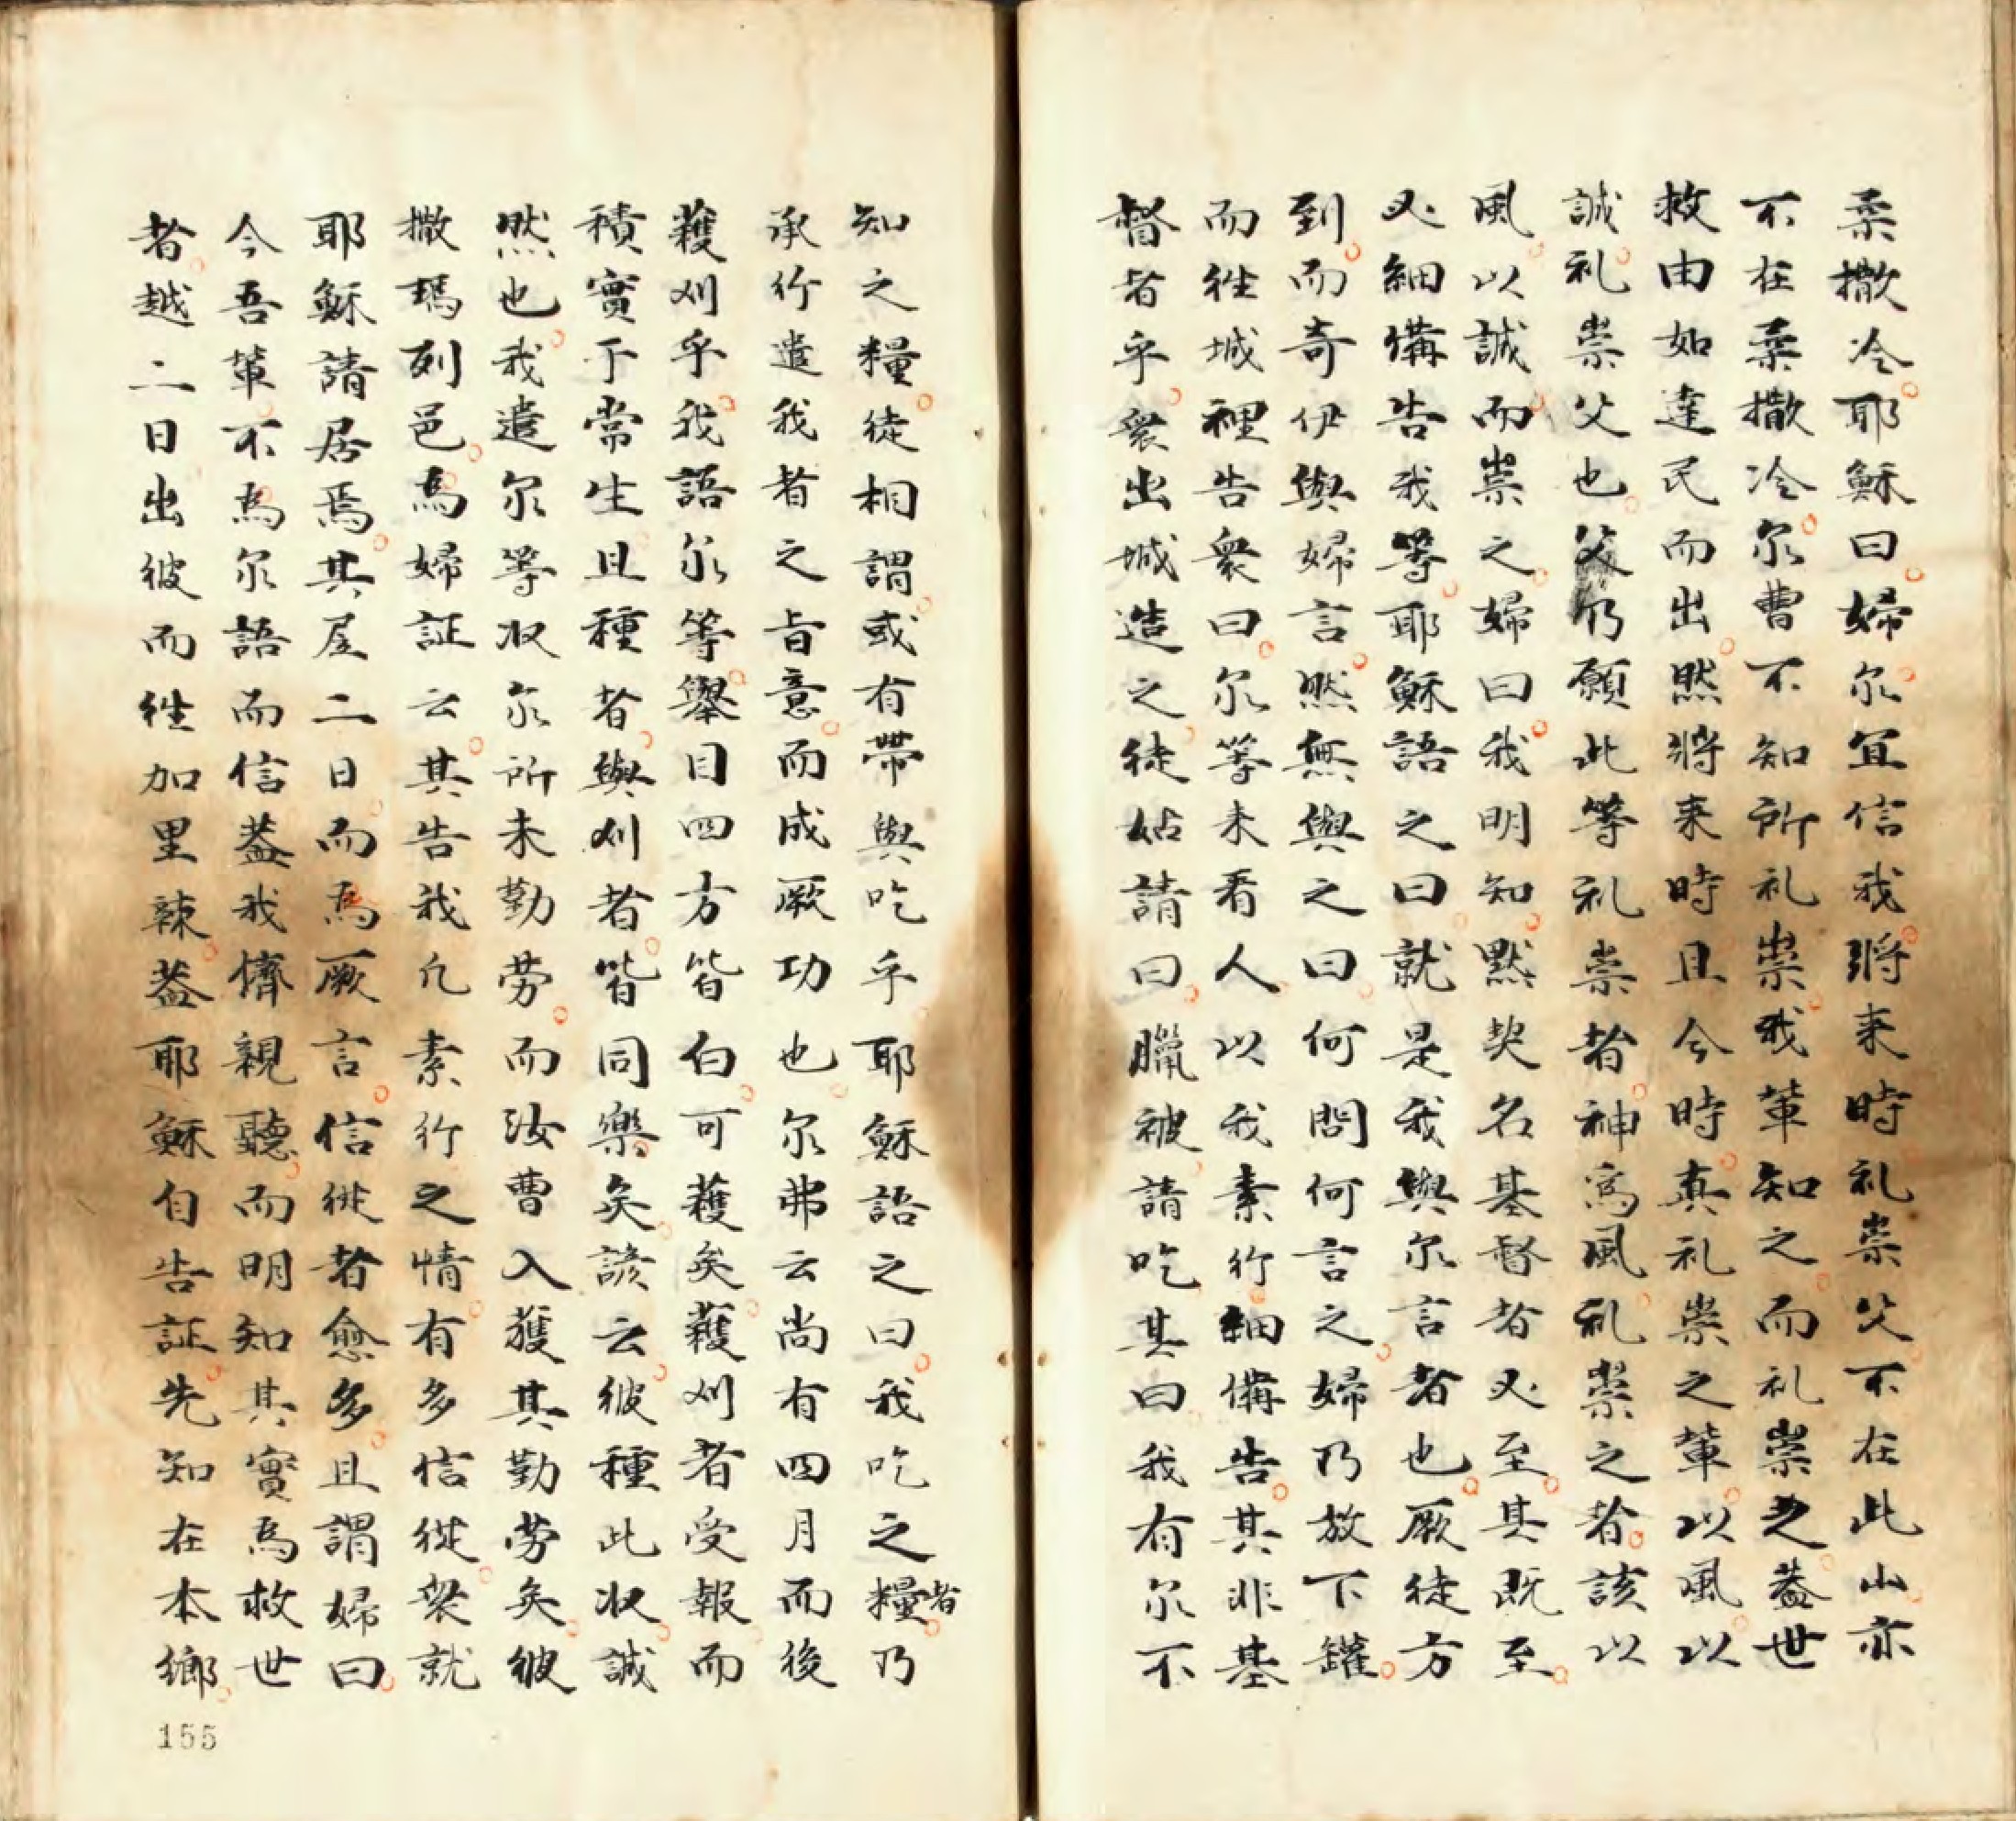 柔撒冷耶穌曰婦尔宜信我將来時礼崇父不在此山亦
不在柔撒冷尔曹不知所礼崇我輩知之而礼崇之葢世
救由如達民而出然將来時且今時真礼崇之輩以風以
誠礼崇父也父乃願此等礼崇者神為風礼崇之者該以
風以誠而崇之婦曰我明知黙契名基督者必至其既至
必細備告我等耶穌語之曰就是我與尔言者也厥徒方
到而奇伊與婦言然無與之曰何問何言之婦乃放下罐
而徃城裡告衆曰尔等来看人以我素行細備告其非基
督者乎衆出城造之徒姑請曰臘被請吃其曰我有尔不
知之糧徒相謂或有帶與吃乎耶穌語之曰我吃之糧者乃
承行遣我者之旨意而成厥功也尔弗云尚有四月而後
穫刈乎我語尔等舉目四方皆白可穫矣穫刈者受報而
積實于常生且種者與刈者皆同樂矣諺云彼種此收誠
然也我遣尔等收尔所未勤劳而汝曹入獲其勤劳矣彼
撒瑪列邑為婦証云其告我凢素行之情有多信從衆就
耶穌請居焉其居二日而為厥言信從者愈多且謂婦曰
今吾輩不為尔語而信葢我儕親聽而明知其實為救世
者越二日出彼而徃加里辣葢耶穌自告証先知在本鄉
155